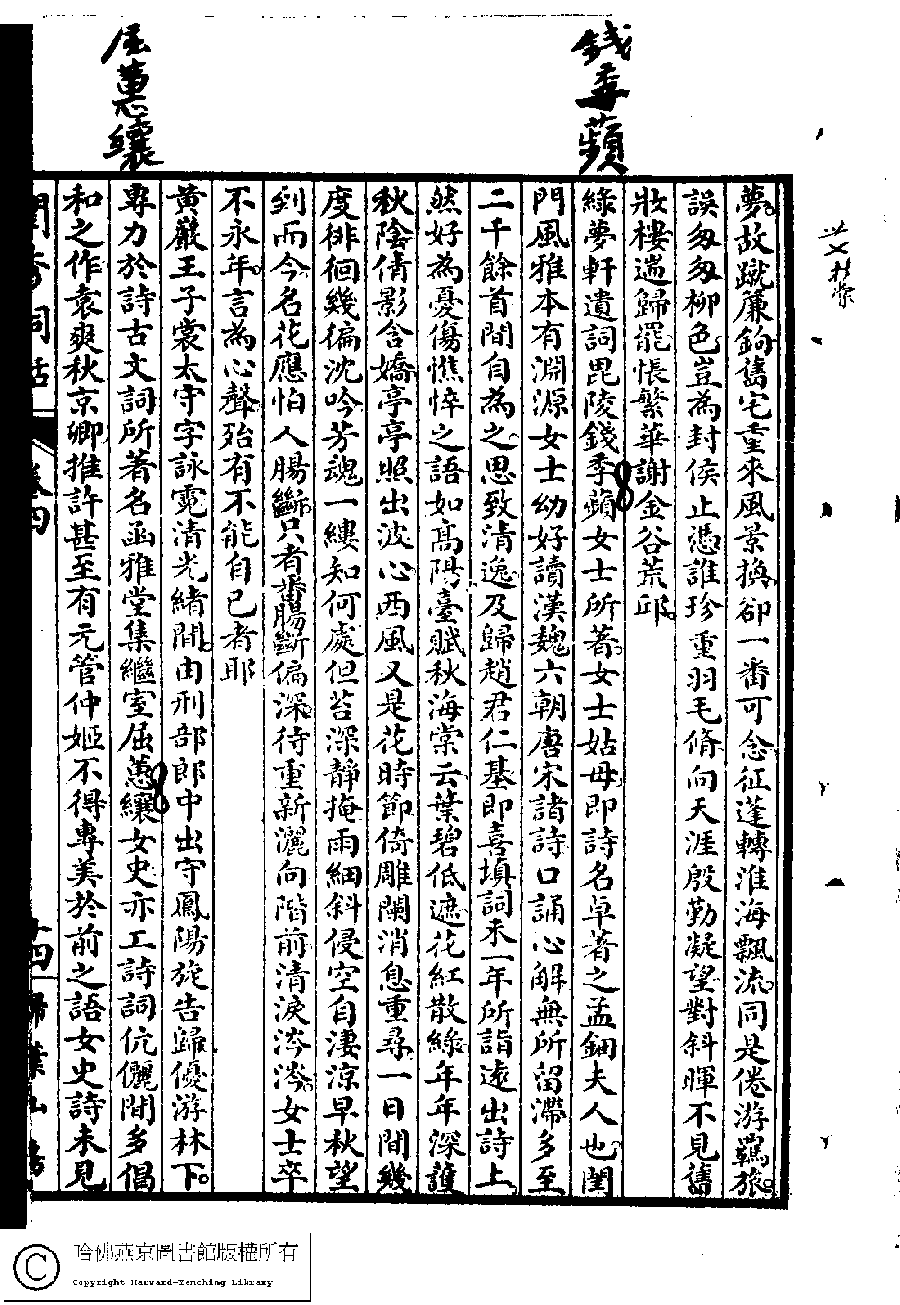 錢季蘋
屈蕙纕
夢故蹴簾鉤舊宅重來風景換卻一番可念征蓬轉淮海飄流同是倦游羈旅
誤匆匆柳色豈為封侯止憑誰珍重羽毛脩向天涯殷勤凝望對斜暉不見舊
妝樓遄歸罷悵繁華謝金谷荒邱
綠夢軒遺詞毘陵錢季蘋女士所著女士姑母即詩名卓著之孟鈿夫人也閨
門風雅本有淵源女士幼好讀漢魏六朝唐宋諸詩口誦心解無所留滯多至
二千餘首間自為之思致清逸及歸趙君仁基即喜填詞未一年所詣遠出詩上
然好為憂傷憔悴之語如高陽臺賦秋海棠云葉碧低遮花紅散綠年年深護
秋陰倩影含嬌亭亭照出波心西風又是花時節倚雕闌消息重尋一日間幾
度徘徊幾徧沈吟芳魂一縷知何處但苔深靜掩雨細斜侵空自淒涼早秋望
到而今名花應怕人腸斷只者番腸斷偏深待重新灑向階前清淚涔涔女士卒
不永年言為心聲殆有不能自已者耶
黃巖王子裳太守字詠霓清光緒間由刑部郎中出守鳳陽旋告歸優游林下
專力於詩古文詞所著名函雅堂集繼室屈蕙纕女史亦工詩詞伉儷間多倡
和之作袁爽秋京卿推許甚至有元管仲姬不得專美於前之語女史詩未見
閨秀詞話
卷四
十四
掃葉山房
哈佛燕京圖書館版權所有
Copyright Harvard-Yenching Library